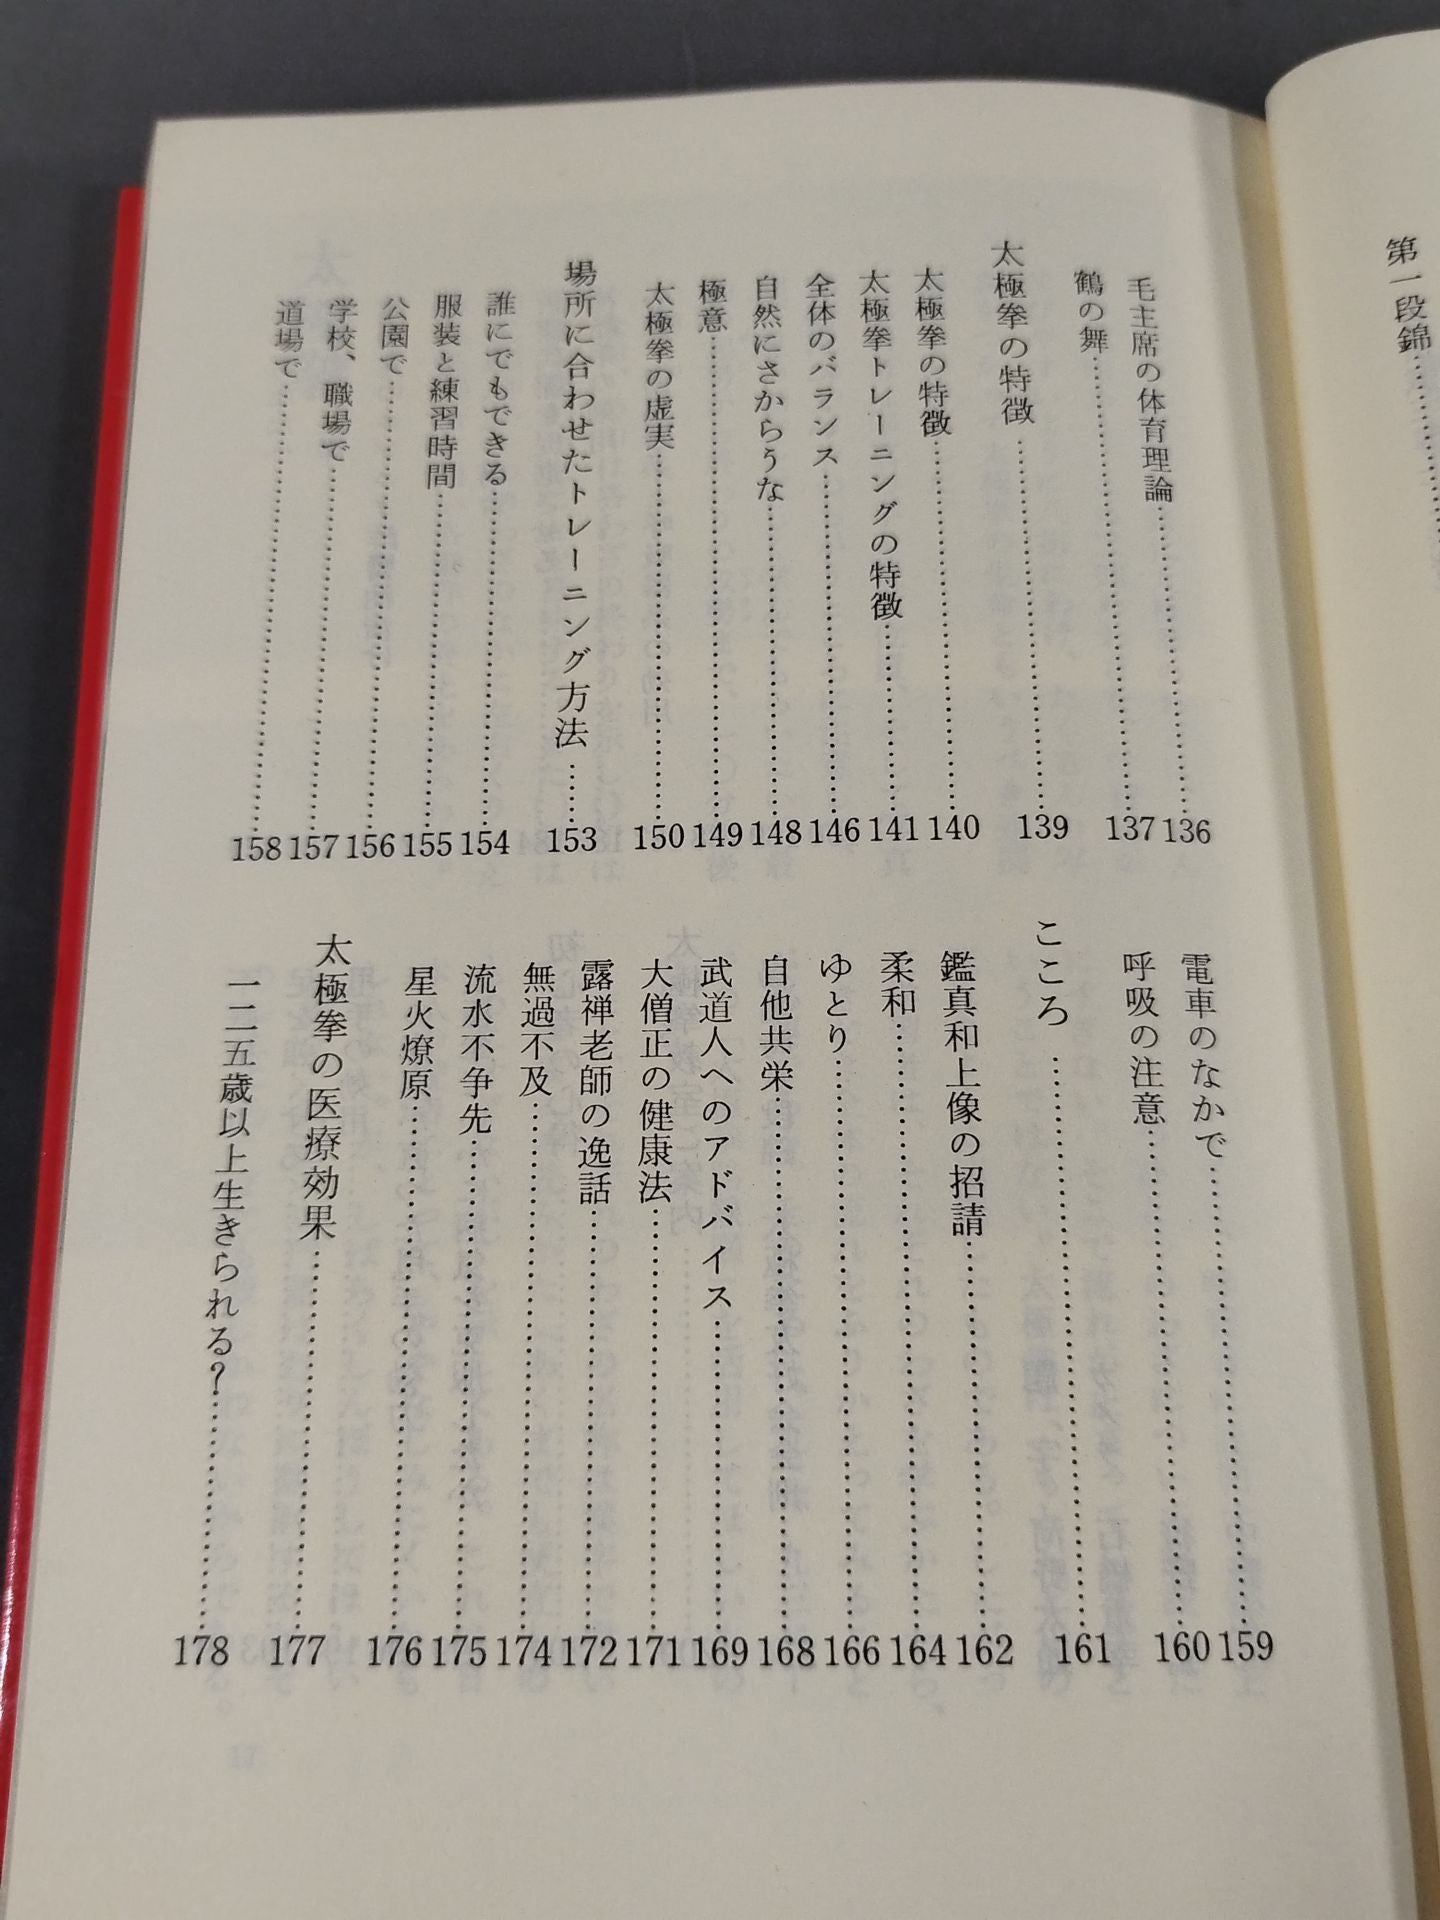 第一段錦……
毛主席の体育理論……136
鶴の舞……137
太極拳の特徴……139
太極拳の特徴……140
太極拳トレーニングの特徴……141
全体のバランス……146
自然にさからうな……148
極意……149
太極拳の虚実……150
場所に合わせたトレーニング方法……153
誰にでもできる……154
服装と練習時間……155
公園で……156
学校、職場で……157
道場で……158
電車のなかで……159
呼吸の注意……160
こころ……161
鑑真和上像の招請……162
柔和……164
ゆとり……166
自他共栄……168
武道人へのアドバイス……169
大僧正の健康法……171
露禅老師の逸話……172
無過不及……174
流水不争先……175
星火燎原……176
太極拳の医療効果……177
一二五歳以上生きられる?……178